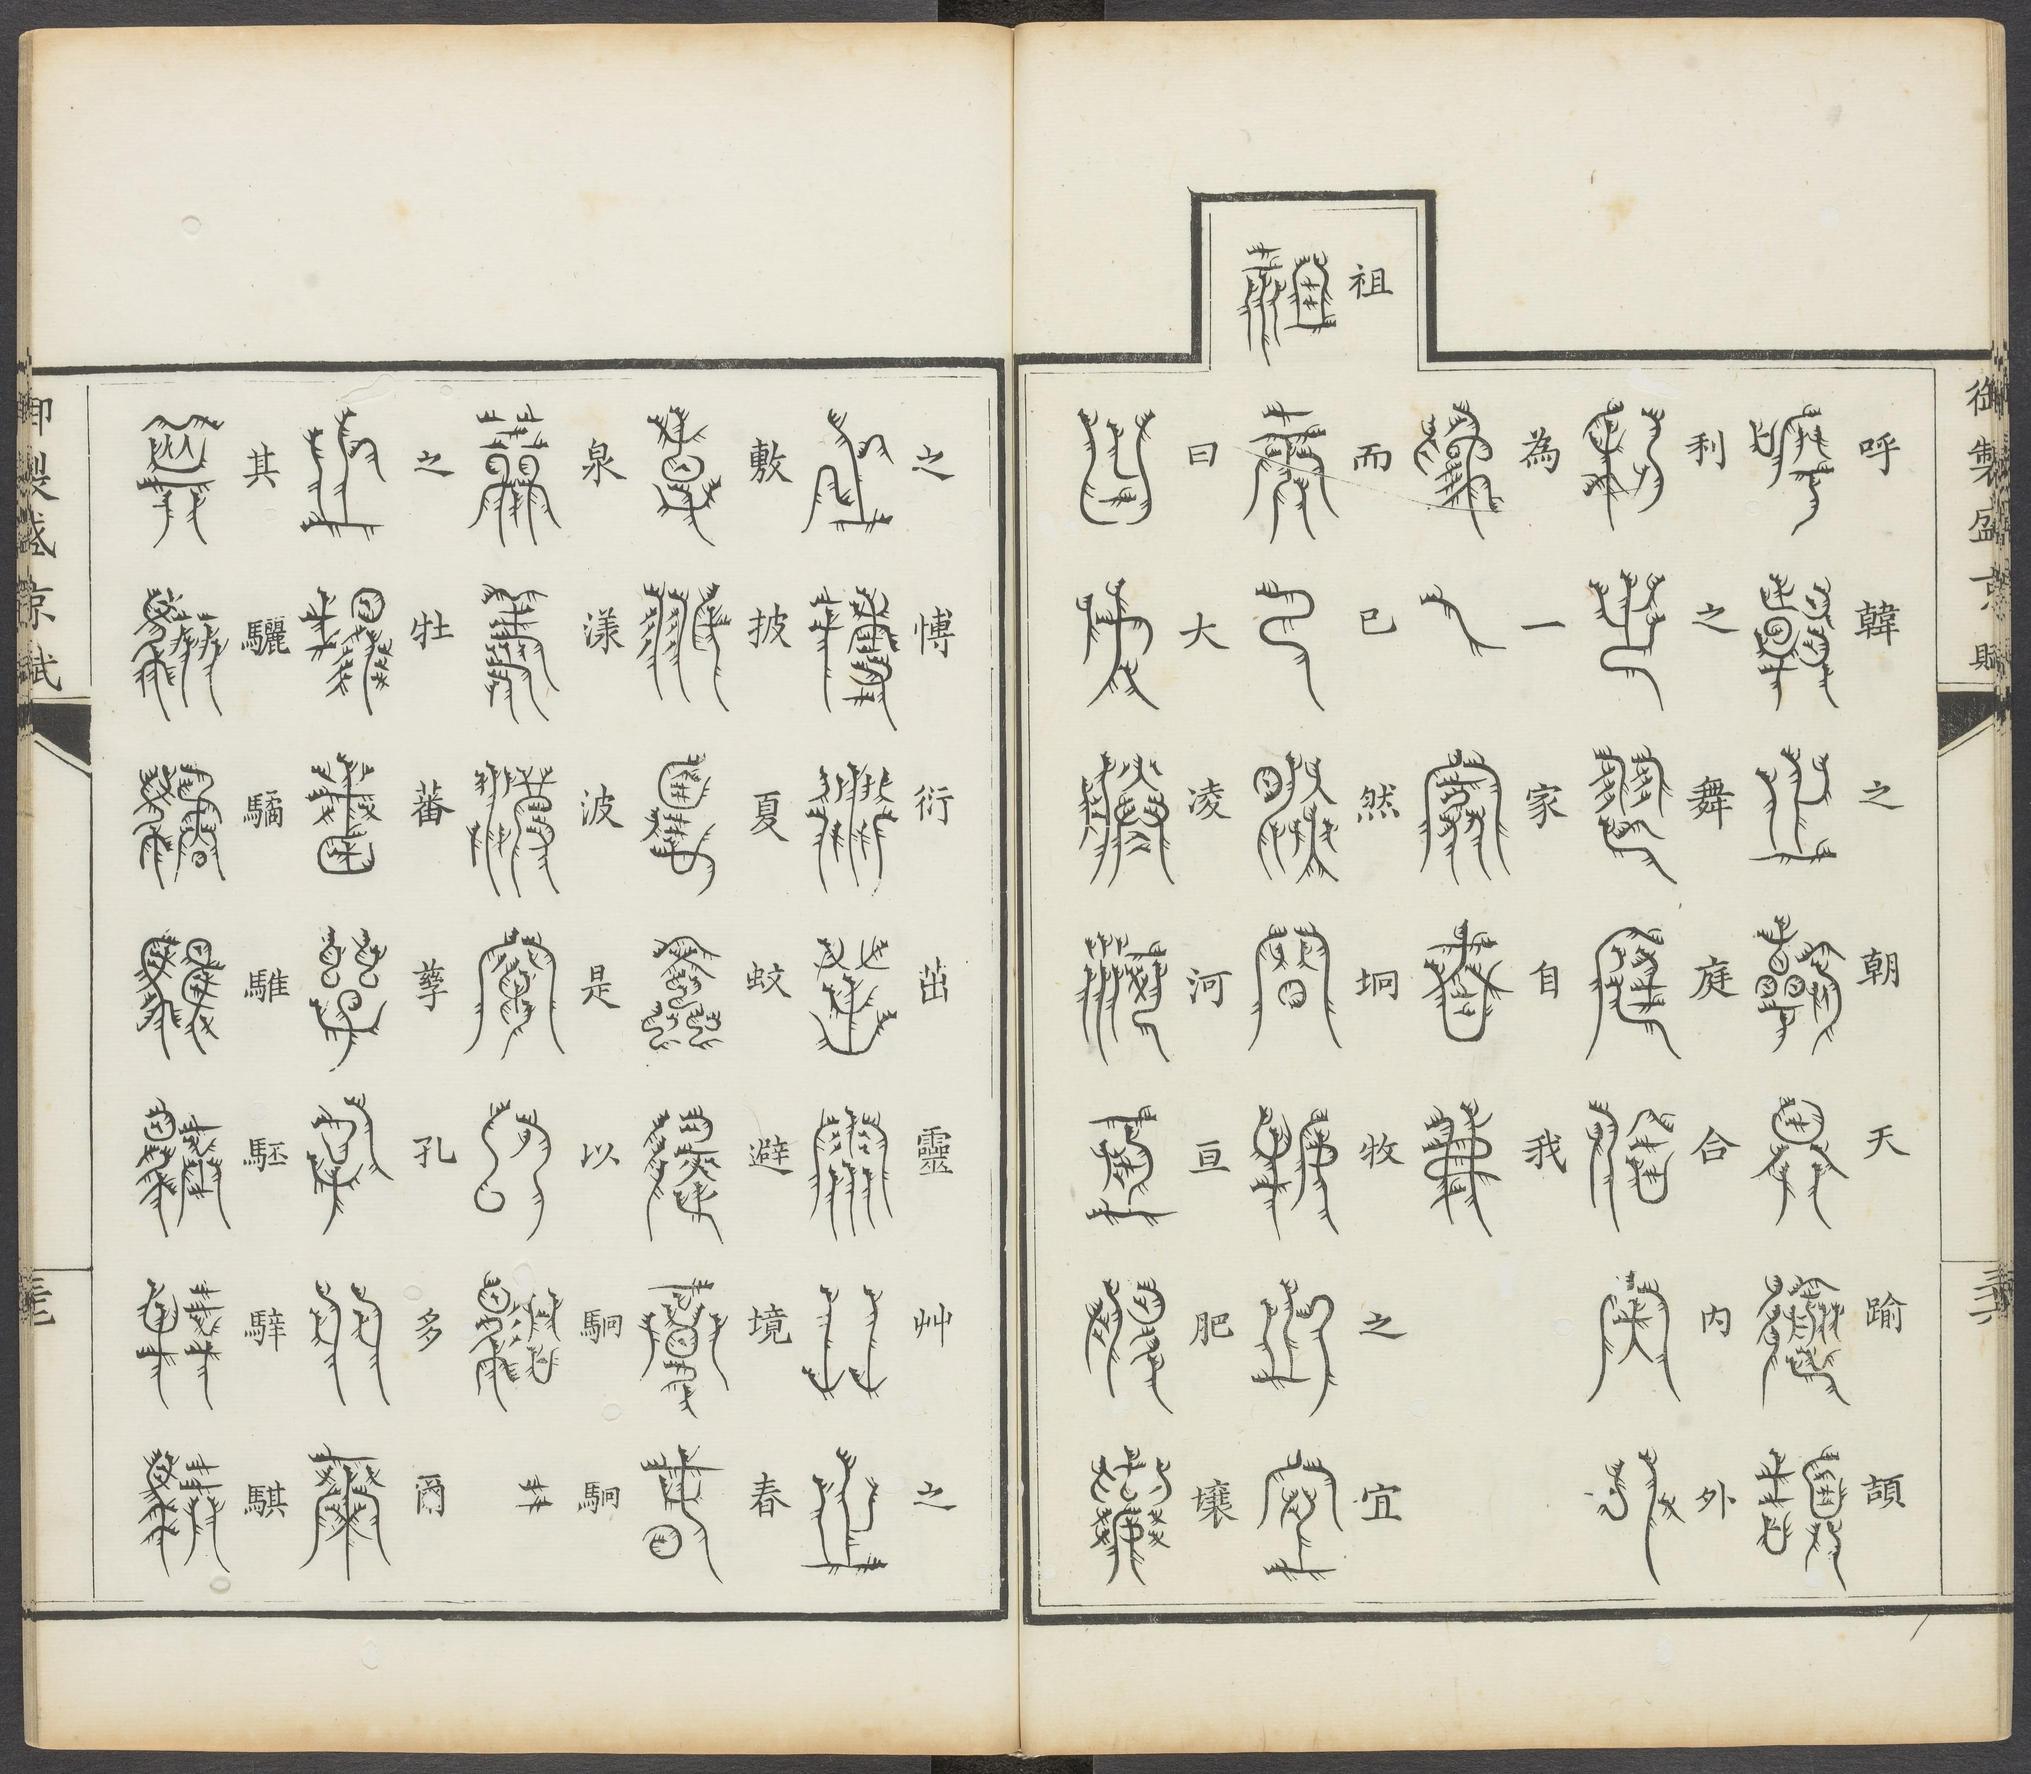 御製盛京賦
呼韓之朝天踰頡
利之舞庭合內外
為一家自我
祖而已然坰牧之宜
曰大凌河亘肥壤
之愽衍茁靈艸之
敷披夏蚊避境春
泉漾波是以駉駉
之牡蕃孳孔多爾
其驪驈騅駓騂騏
御製盛京賦